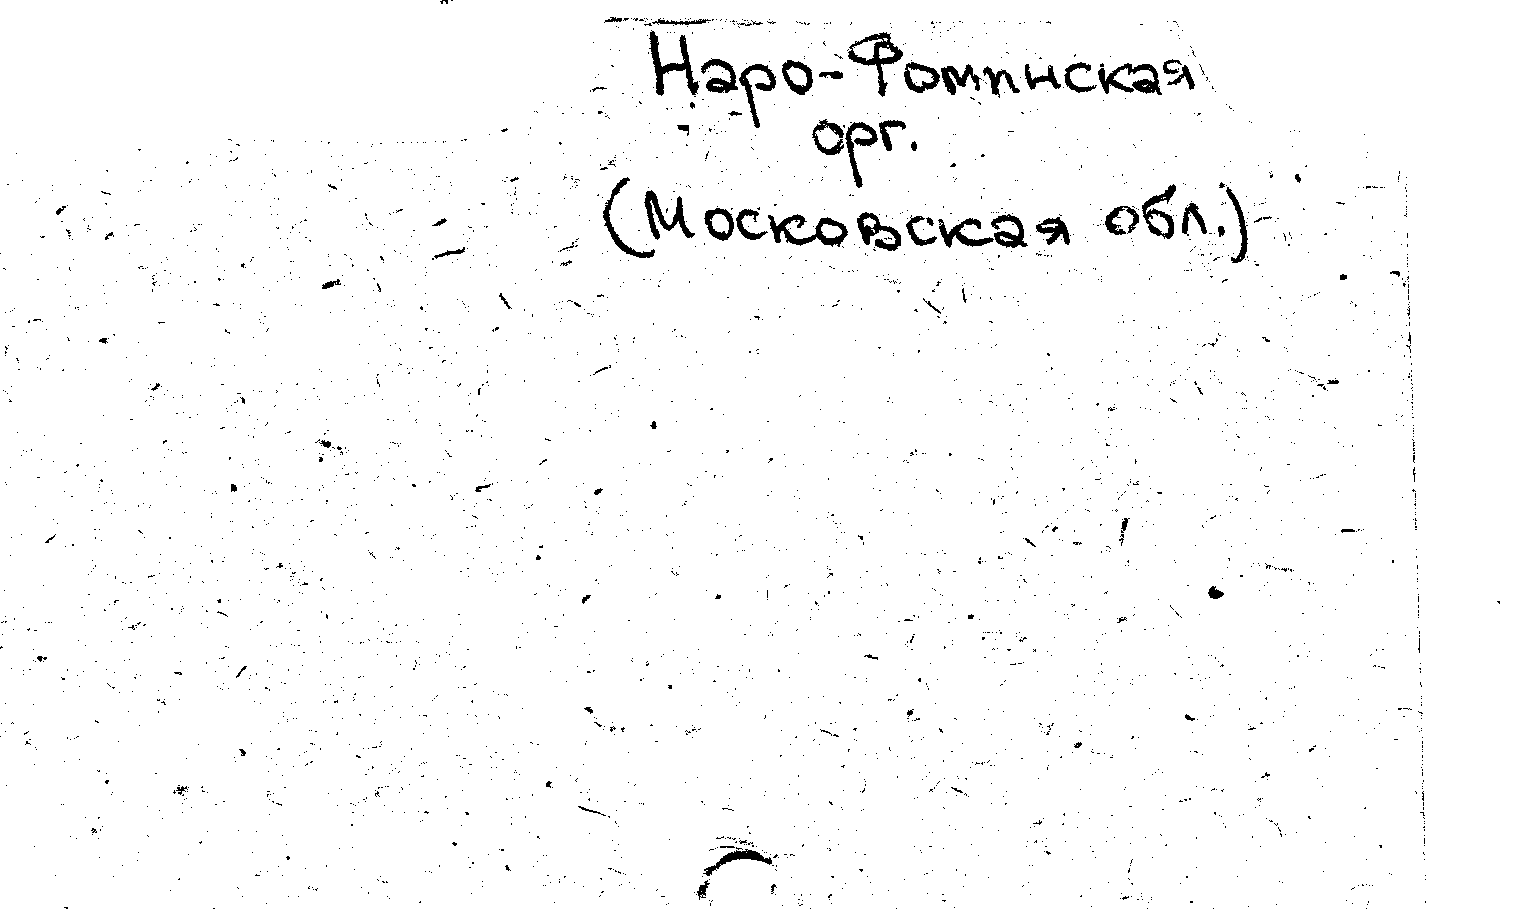 Наро-Фоминская
орг.
(Московская обл.)